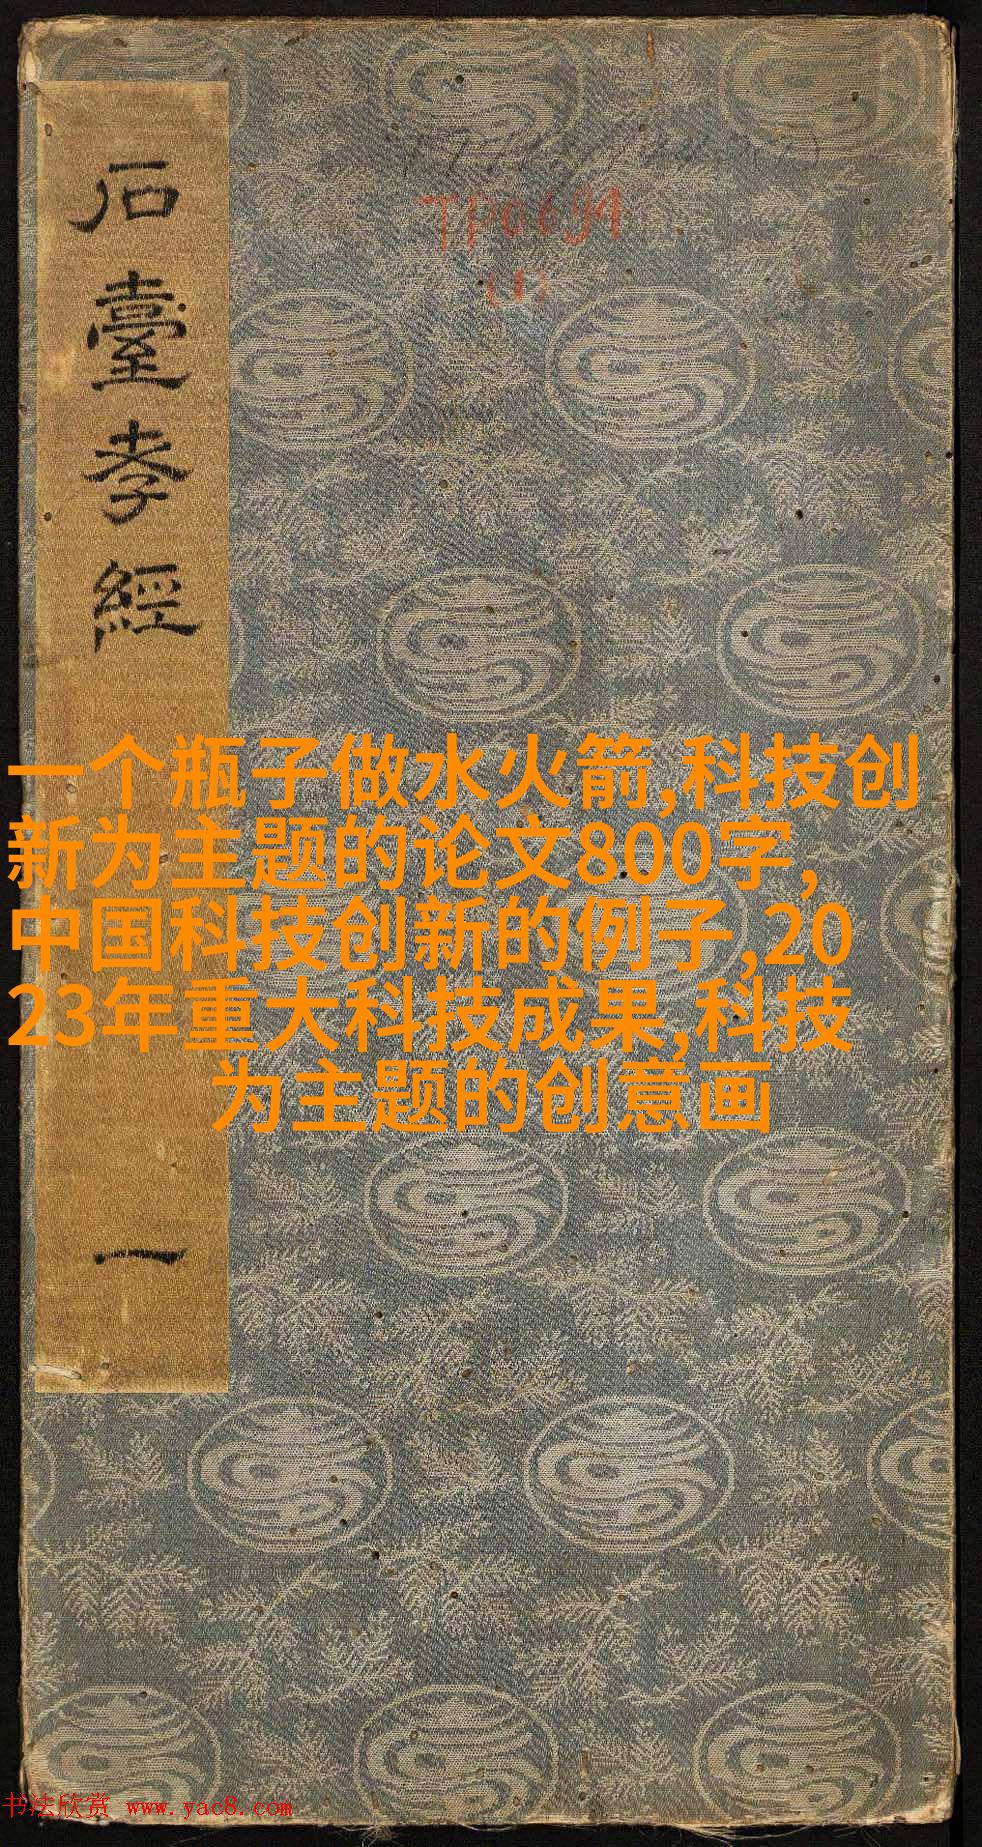 石臺孝經
一
TP0691
(1)
一个瓶子做水火箭,科技创
新为主题的论文800字,
中国科技创新的例子,20
23年重大科技成果,科技
为主题的创意画
书法欣赏 www.yac8.com